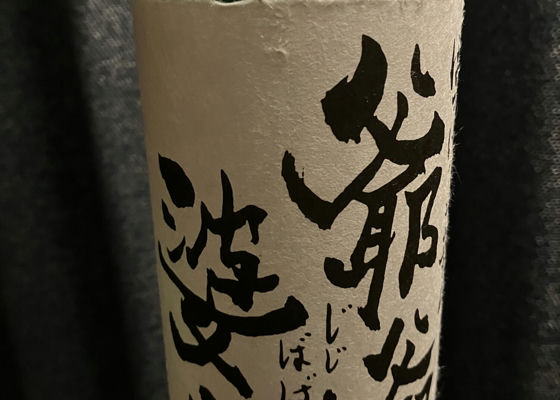 爺爺
じじ
ばば
婆